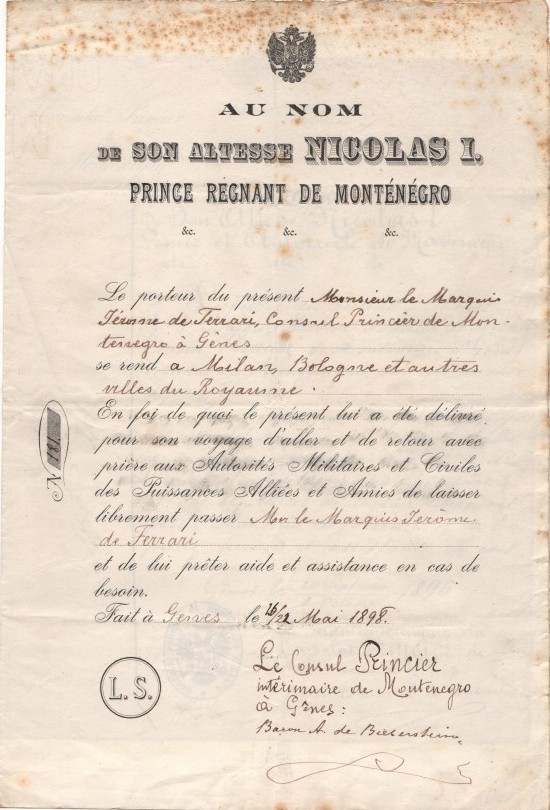 AU NOM
DE SON ALTESSE NICOLAS I.
PRINCE REGNANT DE MONTÉNÉGRO
&c. &c. &c.
Le porteur du présent Monsieur le Marquis
Jérome de Ferrari, Consul Princier de Mon-
tenegro à Gênes
se rend a Milan, Bologne et autres
villes du Royaume.
En foi de quoi le présent lui a été délivré
pour son voyage d'aller et de retour avec
prière aux Autorités Militaires et Civiles
des Puissances Alliées et Amies de laisser
librement passer Mr le Marquis Jerôme
de Ferrari
et de lui prêter aide et assistance en cas de
besoin.
Fait à Genes le Mai 1898.
N
L. S.
Le Consul Princier
intérimaire de Montenegro
à Gênes:
Baron A. de